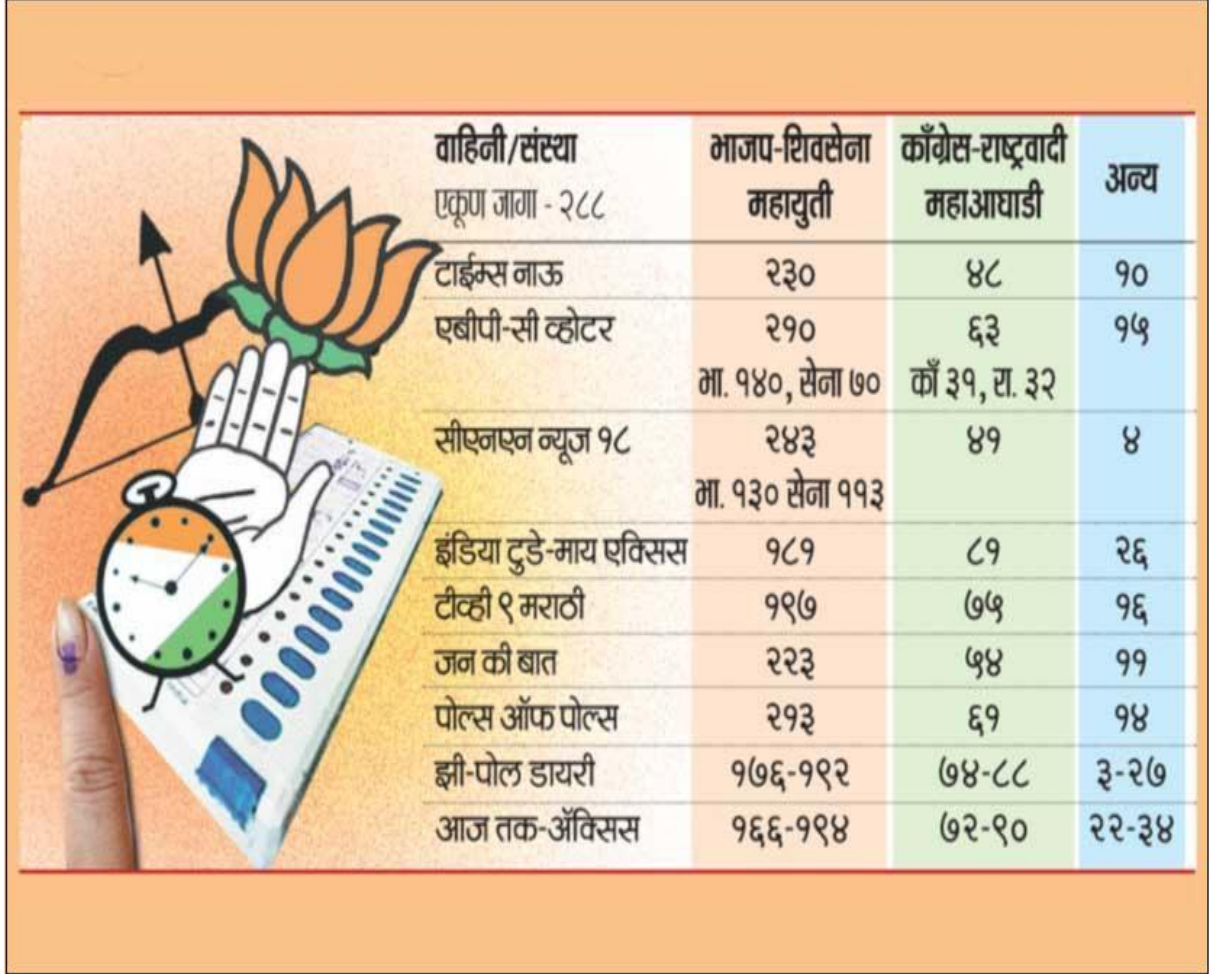 वाहिनी/संस्था भाजप-शिवसेना महायुती काँग्रेस-राष्ट्रवादी महाआघाडी अन्य
एकूण जागा - २८८
टाईम्स नाऊ २३० ४८ १०
एबीपी-सी व्होटर २१० ६३ १५
भा. १४०, सेना ७० काँ ३१, रा. ३२
सीएनएन न्यूज १८ २४३ ४१ ४
भा. १३० सेना ११३
इंडिया टुडे-माय एक्सिस १८१ ८१ २६
टीव्ही ९ मराठी १९७ ७५ १६
जन की बात २२३ ५४ ११
पोल्स ऑफ पोल्स २१३ ६१ १४
झी-पोल डायरी १७६-१९२ ७४-८८ ३-२७
आज तक-ॲक्सिस १६६-१९४ ७२-९० २२-३४